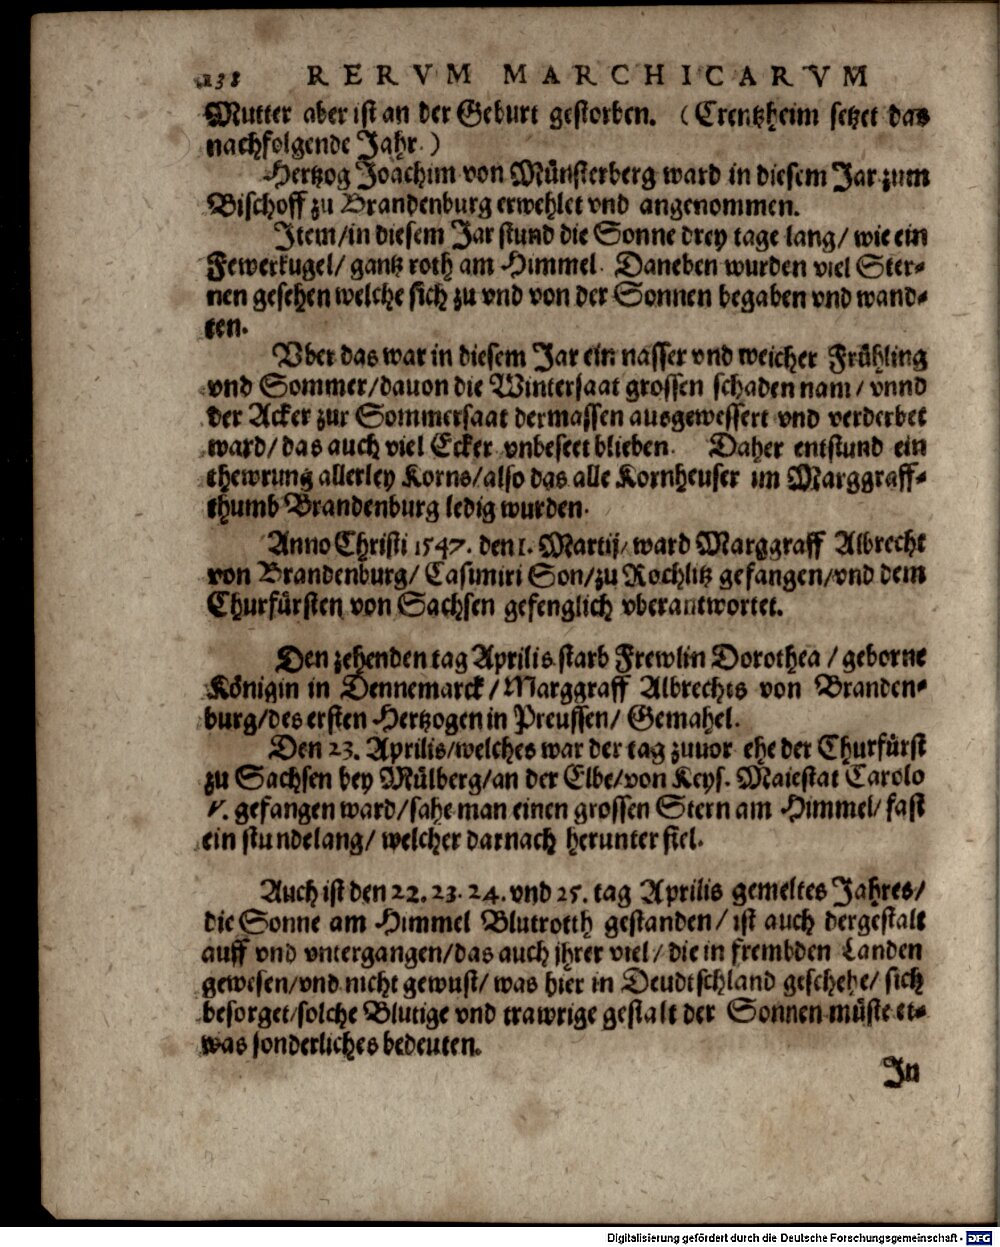 238 RERVM MARCHICARVM
Mutter aber ist an der Geburt gestorben. (Crentzheim setzet das
nachfolgende Jahr.)
Hertzog Joachim von Münsterberg ward in diesem Jar zum
Bischoff zu Brandenburg erwehlet vnd angenommen.
Item/in diesem Jar stund die Sonne drey tage lang/ wie ein
Fewerkugel/ gantz roth am Himmel. Daneben wurden viel Ster-
nen gesehen welche sich zu vnd von der Sonnen begaben vnd wand-
ten.
Vber das war in diesem Jar ein nasser vnd weicher Frühling
vnd Sommer/dauon die Wintersaat grossen schaden nam/ vnnd
der Acker zur Sommersaat dermassen ausgewessert vnd verderbet
ward/das auch viel Ecker vnbeseet blieben. Daher entstund ein
thewrung allerley Korns/also das alle Kornheuser im Marggraff-
thumb Brandenburg ledig wurden.
Anno Christi 1547. den 1. Martij/ward Marggraff Albrecht
von Brandenburg/ Casimiri Son/zu Rochlitz gefangen/vnd dem
Churfürsten von Sachsen gefenglich vberantwortet.
Den zehenden tag Aprilis starb Frewlin Dorothea / geborne
Königin in Dennemarck/Marggraff Albrechts von Branden-
burg/des ersten Hertzogen in Preussen/ Gemahel.
Den 23. Aprilis/welches war der tag zuuor ehe der Churfürst
zu Sachsen bey Mülberg/an der Elbe/von Keys. Maiestat Carolo
V. gefangen ward/sahe man einen grossen Stern am Himmel/ fast
ein stundelang/ welcher darnach herunter fiel.
Auch ist den 22. 23. 24. vnd 25. tag Aprilis gemeltes Jahres/
die Sonne am Himmel Blutrotth gestanden/ ist auch dergestalt
auff vnd vntergangen/das auch jhrer viel/ die in frembden Landen
gewesen/vnd nicht gewust/ was hier in Deudtschland geschehe/ sich
besorget/solche Blutige vnd trawrige gestalt der Sonnen müste et-
was sonderliches bedeuten.
In
Digitalisierung gefördert durch die Deutsche Forschungsgemeinschaft - DFG